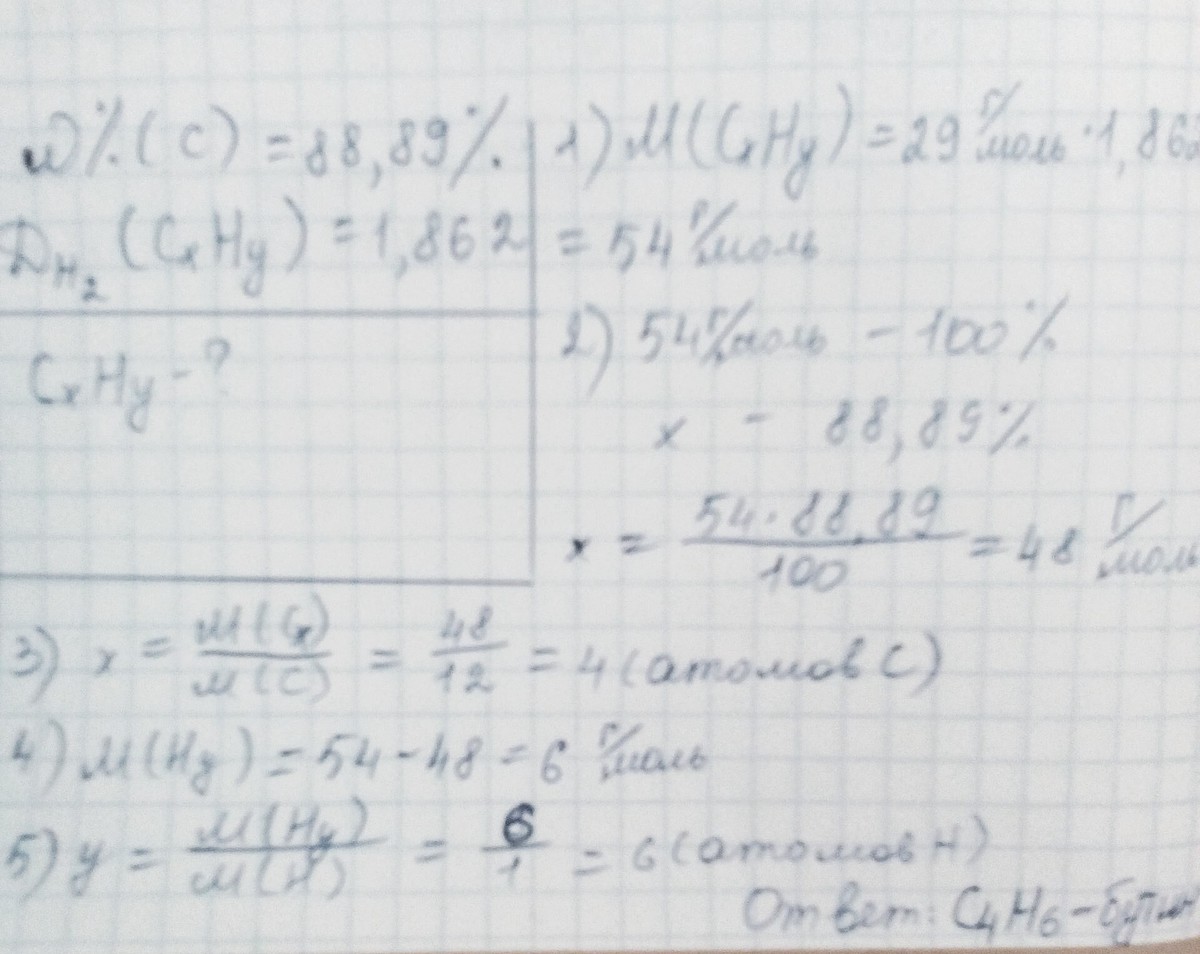 W%(C) = 88,89%
D_H₂ (CxHy) = 1,862
CxHy - ?
1) M(CxHy) = 29 г/моль · 1,862
= 54 г/моль
2) 54 г/моль - 100%
x - 88,89%
x = 54·88,89/100 = 48 г/моль
3) x = M(Cx)/M(C) = 48/12 = 4 (атомов C)
4) M(Hy) = 54 - 48 = 6 г/моль
5) y = M(Hy)/M(H) = 6/1 = 6 (атомов H)
Ответ: C₄H₆ - бутин